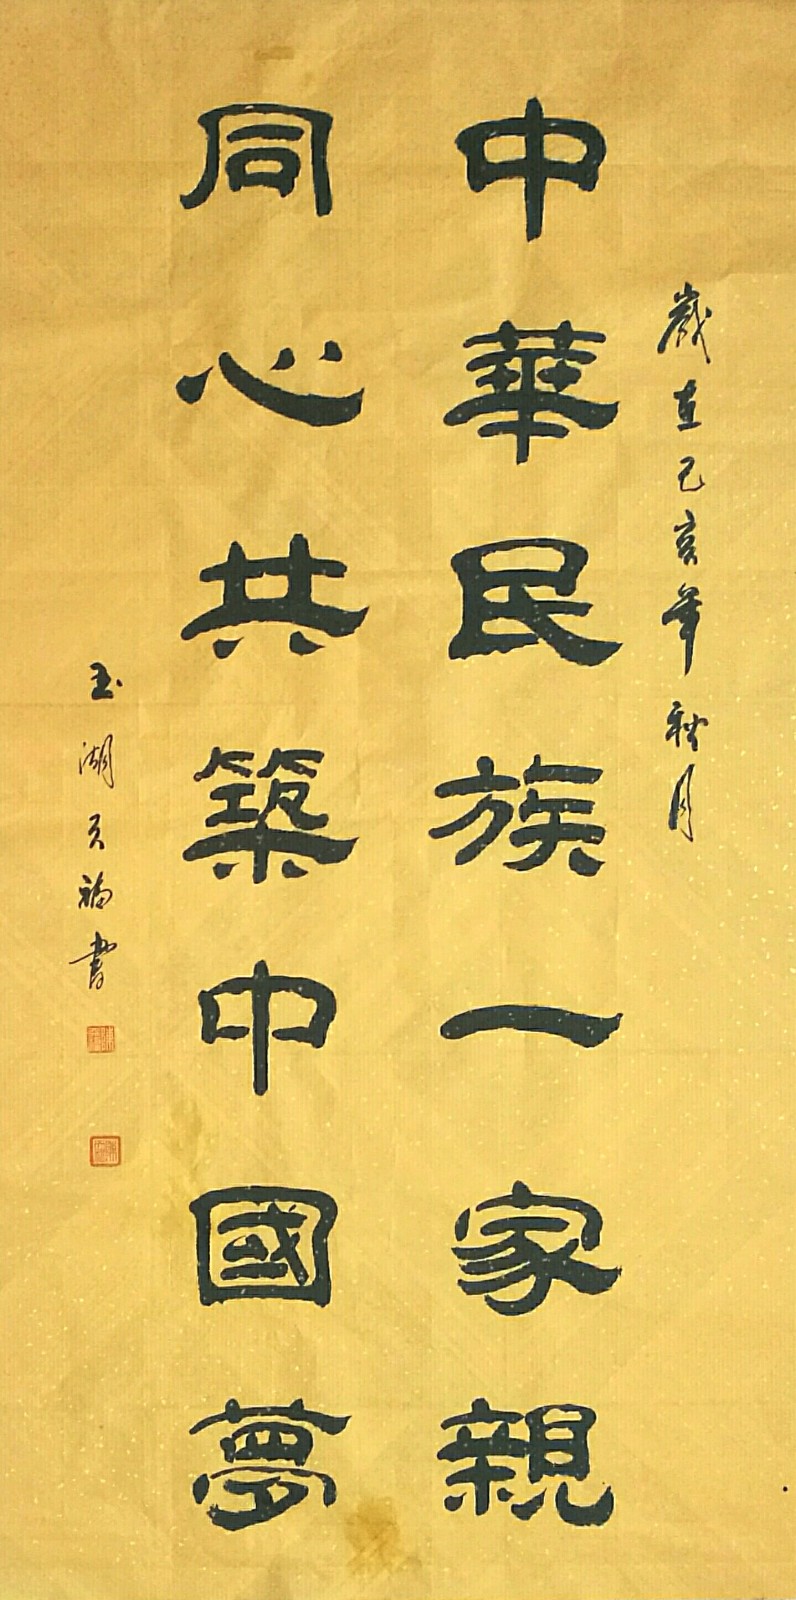 歲在己亥年秋月
中華民族一家親
同心共築中國夢
玉湖天福書